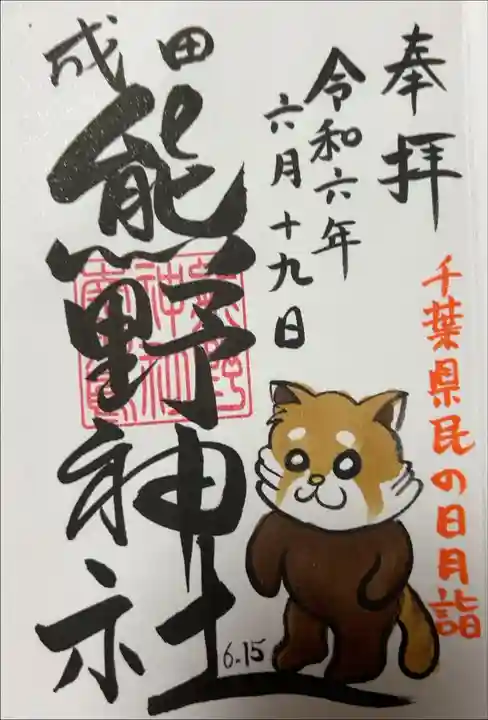 奉拝
千葉県民の日月詣
令和六年
六月十九日
成田
熊野神社
6.15